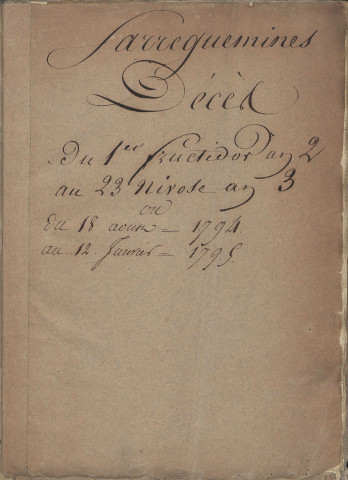 Sarreguemines
Décès
Du 1er fructidor an 2
au 23 Nivose an 3
ou
du 18 aoust = 1794
au 12. Janvier = 1795